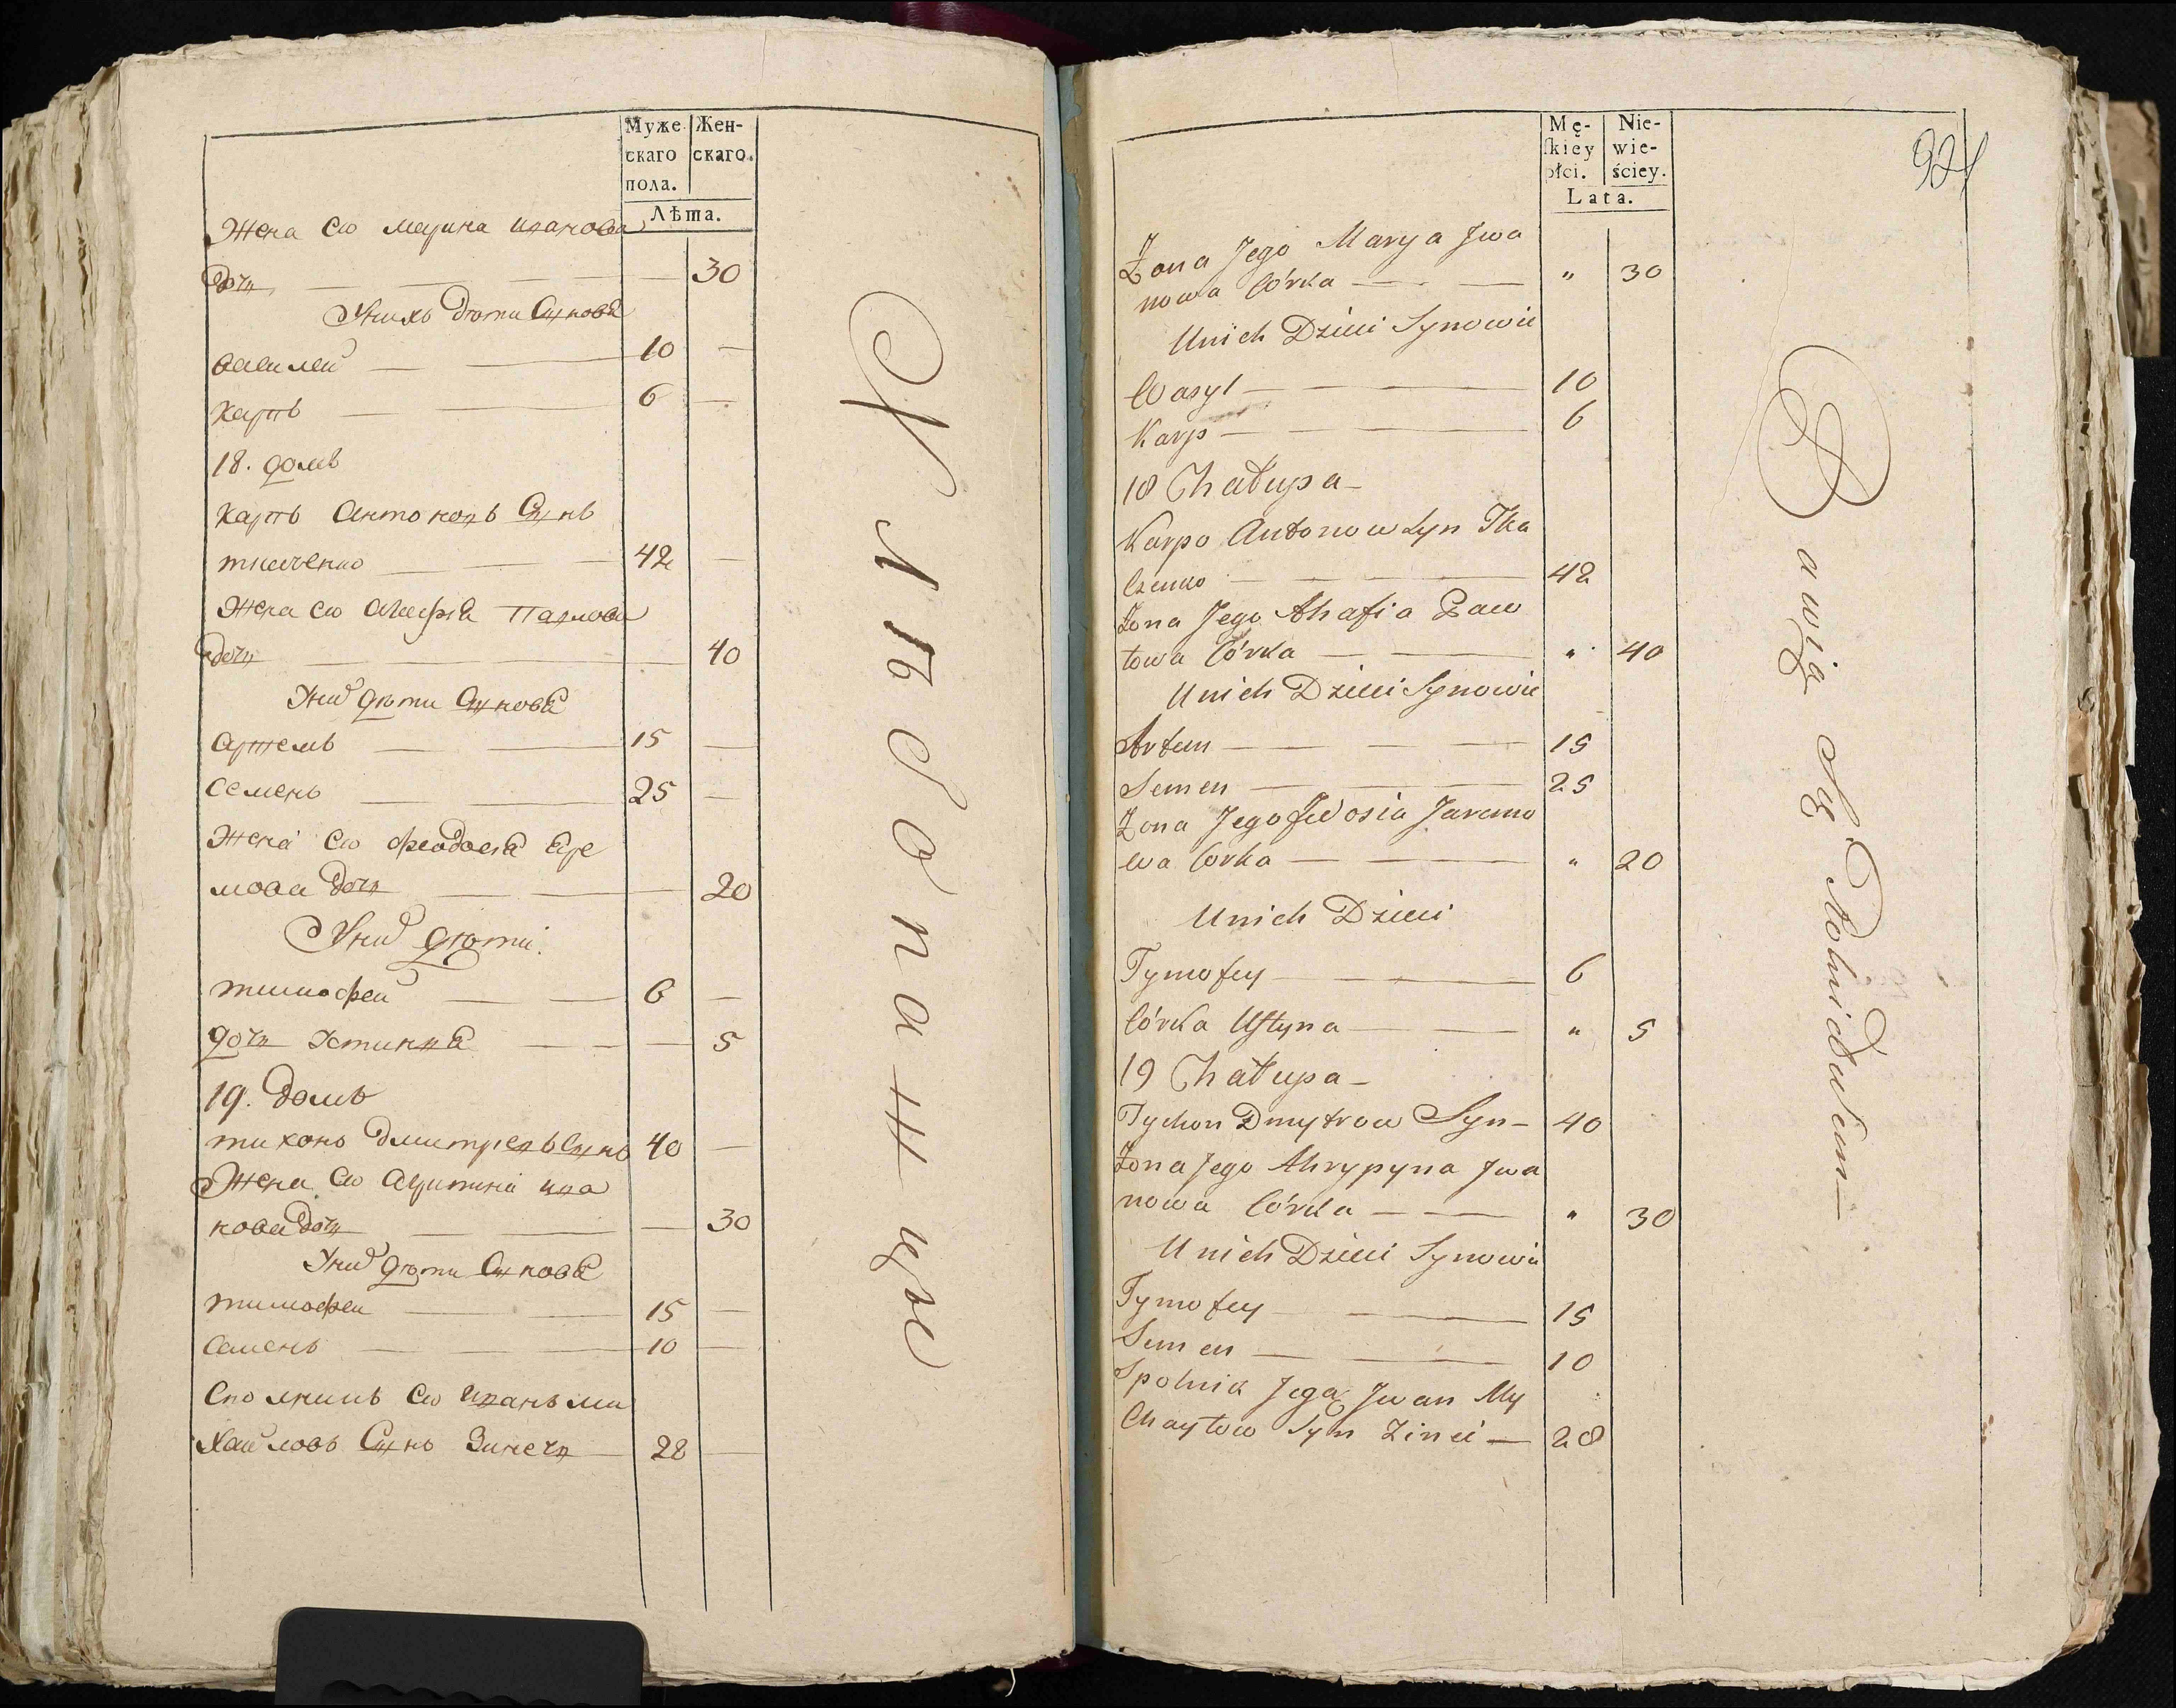 Муже
скаго
пола.
Жен-
скаго.
Лѣта.
Жена ево марина иванова
дочь 30
У нихъ дѣти Сынова
василей 10
карпъ 6
18. домъ
карпъ Антоновъ Сынъ
ткаченко 42
Жена ево агафия Павлова
дочь 40
У ний дѣти Сынова
артемъ 15
семенъ 25
Жена ево феодосия Яре
мова дочь 20
У ний дѣти
тимофей 6
дочь Устиния 5
19. домъ
тихонъ дмитревъ Сынъ 40
Жена ево Агрипина ива
нова дочь 30
У ний дѣти Сынова
тимофеи 15
Семенъ 10
Сполникъ ево Иванъ ми
хайловъ Сынъ Зинечь 28
Хлѣбопашцы
Mę-
skiey
płci.
Nie-
wie-
ściey.
Lata.
Żona Jego Marya Jwa
nowa Córka " 30
Unich Dzieci Synowie
Wasyl 10
Karp 6
18 Chałupa
Karpo Antonow Syn Tka
czenko 42
Żona Jego Ahafia Paw
łowa Córka " 40
Unich Dzieci Synowie
Artem 15
Semen 25
Żona Jego Fedosia Jaremo
wa Corka " 20
Unich Dzieci
Tymofey 6
Córka Ustyna " 5
19 Chałupa
Tychon Dmytrow Syn 40
Żona Jego Ahrypyna Jwa
nowa Córka " 30
Unich Dzieci Synowie
Tymofey 15
Semen 10
Spolnik Jego Jwan My
Chayłow Syn Zineć 28
Bawią Się Rolnictwem